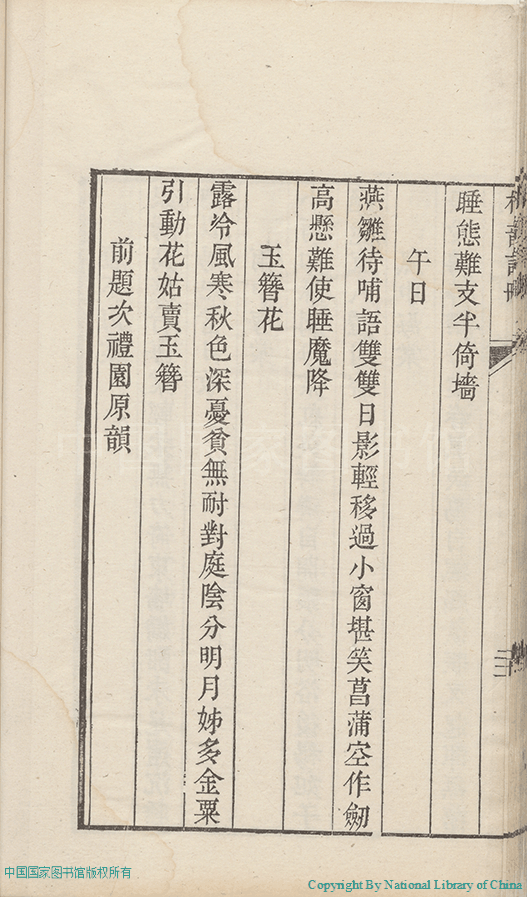 睡態難支半倚墻
午日
燕雛待哺語雙雙日影輕移過小窗堪笑菖蒲空作劒
高懸難使睡魔降
玉簪花
露冷風寒秋色深憂貧無耐對庭陰分明月姊多金粟
引動花姑賣玉簪
前題次禮園原韻
中国国家图书馆版权所有
Copyright By National Library of China